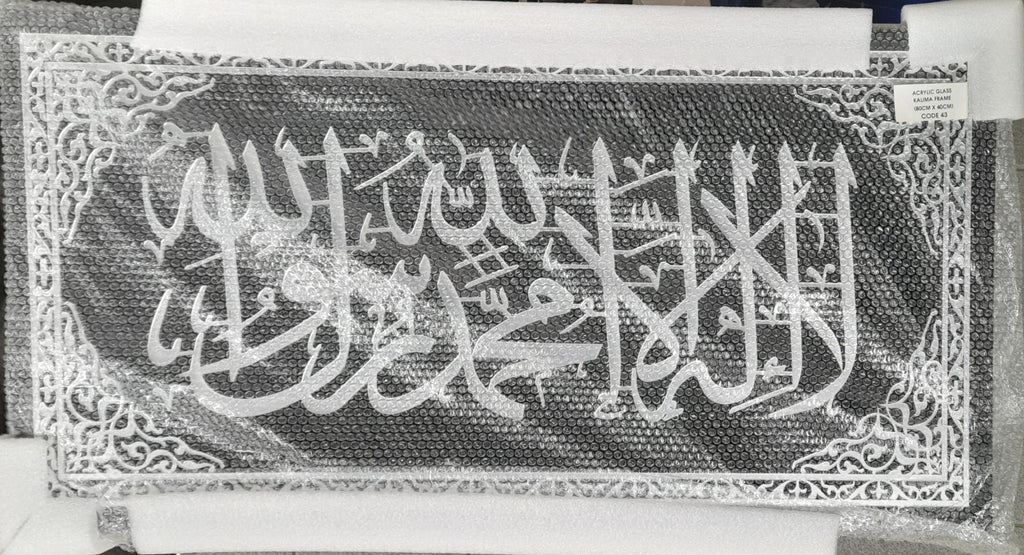 لا إله إلا الله محمد رسول الله
ACRYLIC GLASS
KALIMA FRAME
(80CM X 40CM)
CODE 43